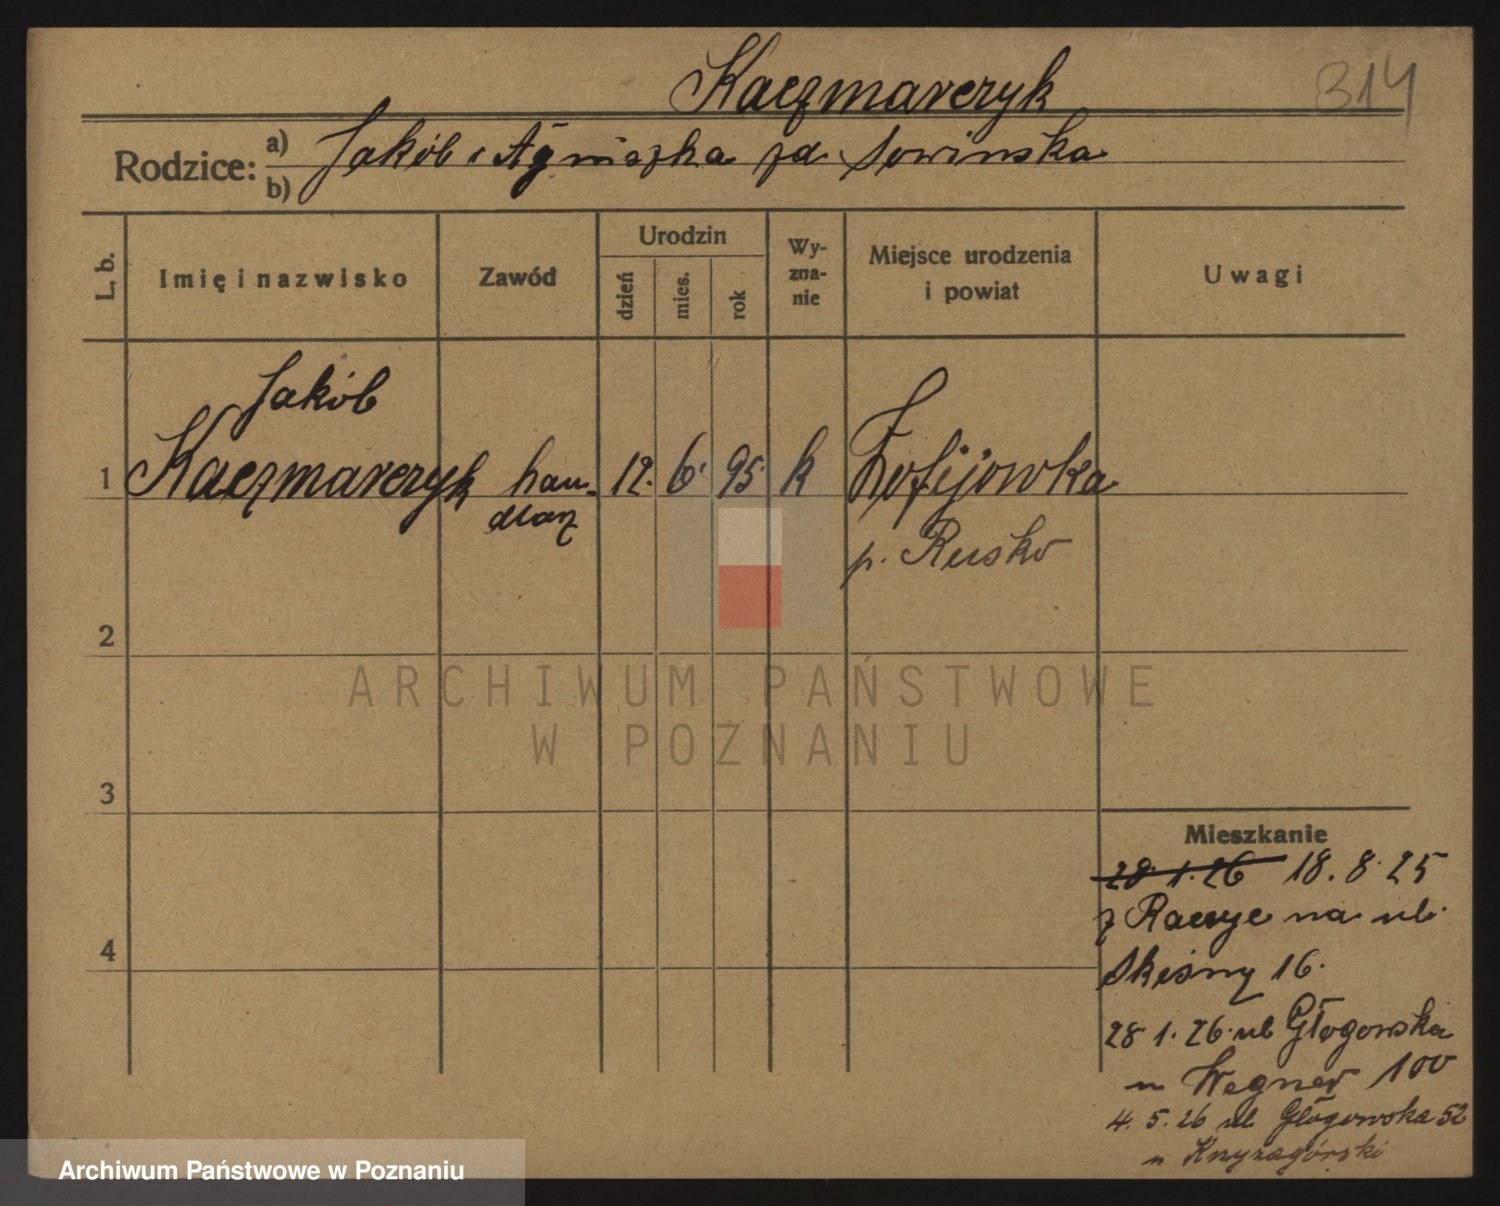 Kaczmarczyk
314
Rodzice: a) b) Jakób i Agniszka zd. Sowinska
L. b.
Imię i nazwisko
Zawód
Urodzin
dzień
mies.
rok
Wy-
zna-
nie
Miejsce urodzenia
i powiat
Uwagi
Jakób
1 Kaczmarczyk han- 12. 6. 95. k Zofijowka
dlarz
p. Rusko
2
ARCHIWUM PAŃSTWOWE
W POZNANIU
3
4
Mieszkanie
28. 1. 26 18. 8. 25
z na ul.
16.
28. 1. 26. ul Głogowska
u Wegner 100
4. 5. 26 ul Głogowska 52
u
Archiwum Państwowe w Poznaniu